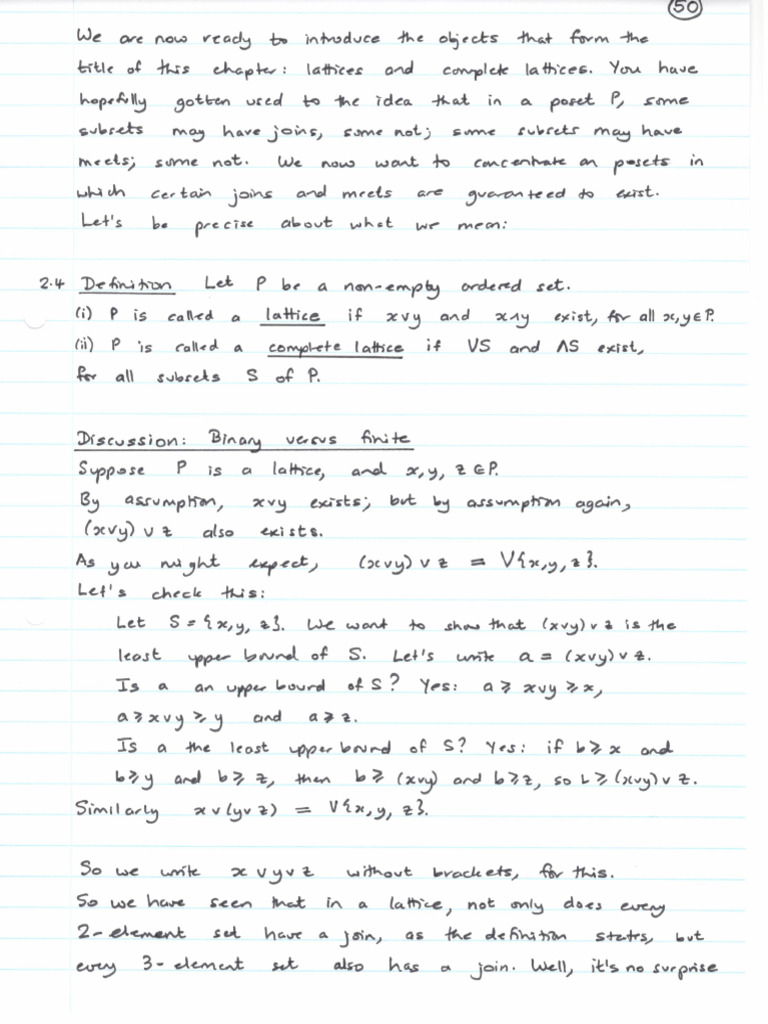 50
We are now ready to introduce the objects that form the
title of this chapter: lattices and complete lattices. You have
hopefully gotten used to the idea that in a poset P, some
subsets may have joins, some not; some subsets may have
meets; some not. We now want to concentrate on posets in
which certain joins and meets are guaranteed to exist.
Let's be precise about what we mean:
2.4 Definition Let P be a non-empty ordered set.
(i) P is called a lattice if x∨y and x∧y exist, for all x,y∈P.
(ii) P is called a complete lattice if ∨S and ∧S exist,
for all subsets S of P.
Discussion: Binary versus finite
Suppose P is a lattice, and x,y, z ∈P.
By assumption, x∨y exists; but by assumption again,
(x∨y) ∨ z also exists.
As you might expect, (x∨y) ∨ z = ∨{x,y,z}.
Let's check this:
Let S = {x,y, z}. We want to show that (x∨y) ∨ z is the
least upper bound of S. Let's write a = (x∨y) ∨ z.
Is a an upper bound of S? Yes: a ⩾ x∨y ⩾ x,
a ⩾ x∨y ⩾ y and a ⩾ z.
Is a the least upper bound of S? Yes: if b ⩾ x and
b ⩾ y and b ⩾ z, then b ⩾ (x∨y) and b ⩾ z, so b ⩾ (x∨y) ∨ z.
Similarly x ∨ (y∨ z) = ∨{x,y, z}.
So we write x ∨ y ∨ z without brackets, for this.
So we have seen that in a lattice, not only does every
2-element set have a join, as the definition states, but
every 3-element set also has a join. Well, it's no surprise